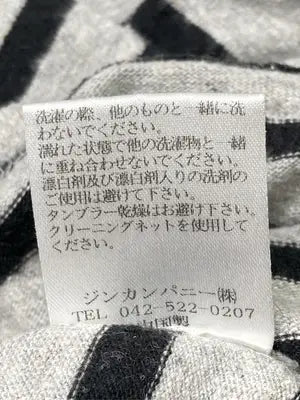 洗濯の際、他のものと一緒に洗
わないでください。
濡れた状態で他の洗濯物と一緒
に重ね合わせないでください。
漂白剤及び漂白剤入りの洗剤の
ご使用は避けて下さい。
タンブラー乾燥はお避け下さい。
クリーニングネットを使用して
ください。
ジンカンパニー㈱
TEL 042-522-0207
中国製